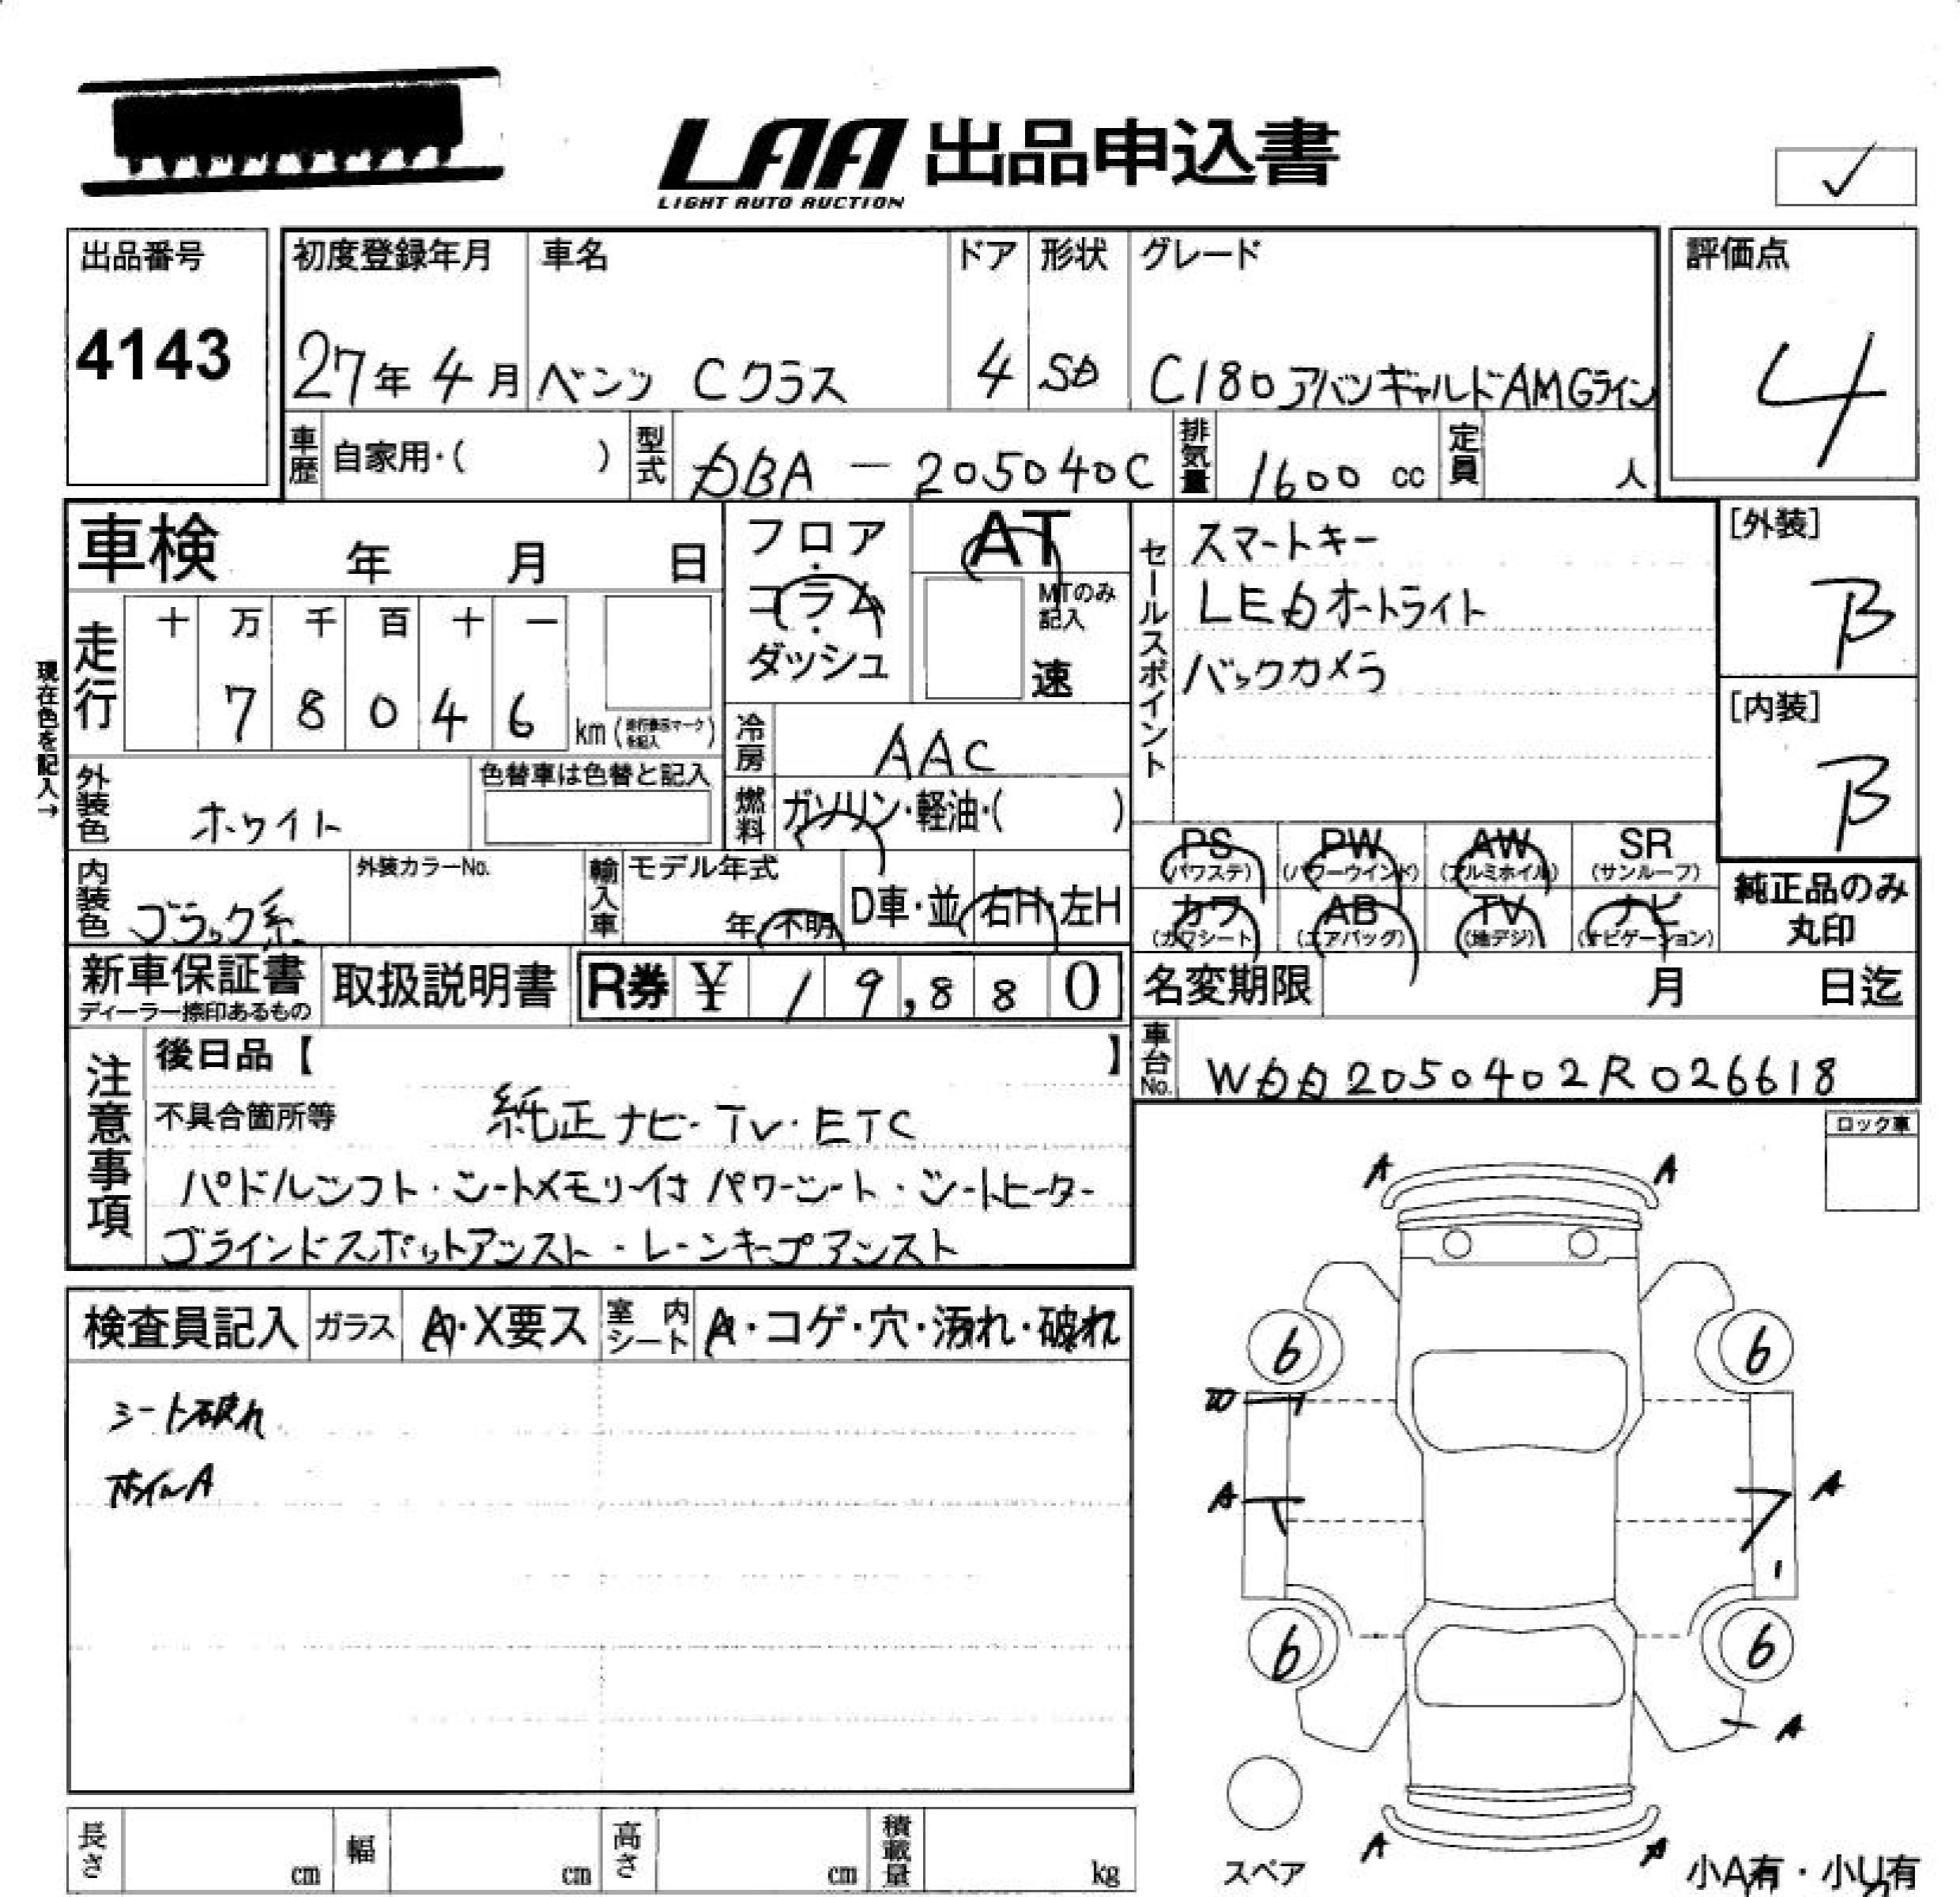 LAA 出品申込書
LIGHT AUTO AUCTION
✓
出品番号
4143
初度登録年月 車名 ドア 形状 グレード
27年 4月 ベンツ Cクラス 4 SD C180アバンギャルドAMGライン
評価点
4
車歴 自家用・( ) 型式 DBA - 205040C 排気量 1600 cc 定員 人
車検 年 月 日
フロア・コラム・ダッシュ
AT
MTのみ記入
速
セールスポイント
スマートキー
LEDオートライト
バックカメラ
[外装]
B
[内装]
B
現在色を記入→
走行
十 万 千 百 十 一
7 8 0 4 6
km (走行表示マークを記入)
冷房 AAC
外装色 ホワイト 色替車は色替と記入
燃料 ガソリン・軽油・( )
PS (パワステ) PW (パワーウインド) AW (アルミホイル) SR (サンルーフ)
カワ (カワシート) AB (エアバッグ) TV (地デジ) ナビ (ナビゲーション)
純正品のみ丸印
内装色 ブラック系 外装カラーNo. 輸入車 モデル年式 年 不明 D車・並 右H・左H
新車保証書 ディーラー捺印あるもの 取扱説明書 R券 ¥ 19,880
名変期限 月 日迄
車台No. WDD2050402R026618
注意事項
後日品【 】
不具合箇所等 純正ナビ・TV・ETC
パドルシフト・シートメモリー付パワーシート・シートヒーター
ブラインドスポットアシスト・レーンキープアシスト
ロック車
検査員記入 ガラス A・X要ス 室内シート A・コゲ・穴・汚れ・破れ
シート破れ
ホイルA
A A
6 6
W
A A
1
6 6
A
A A
スペア
小A有・小U有
長さ cm 幅 cm 高さ cm 積載量 kg